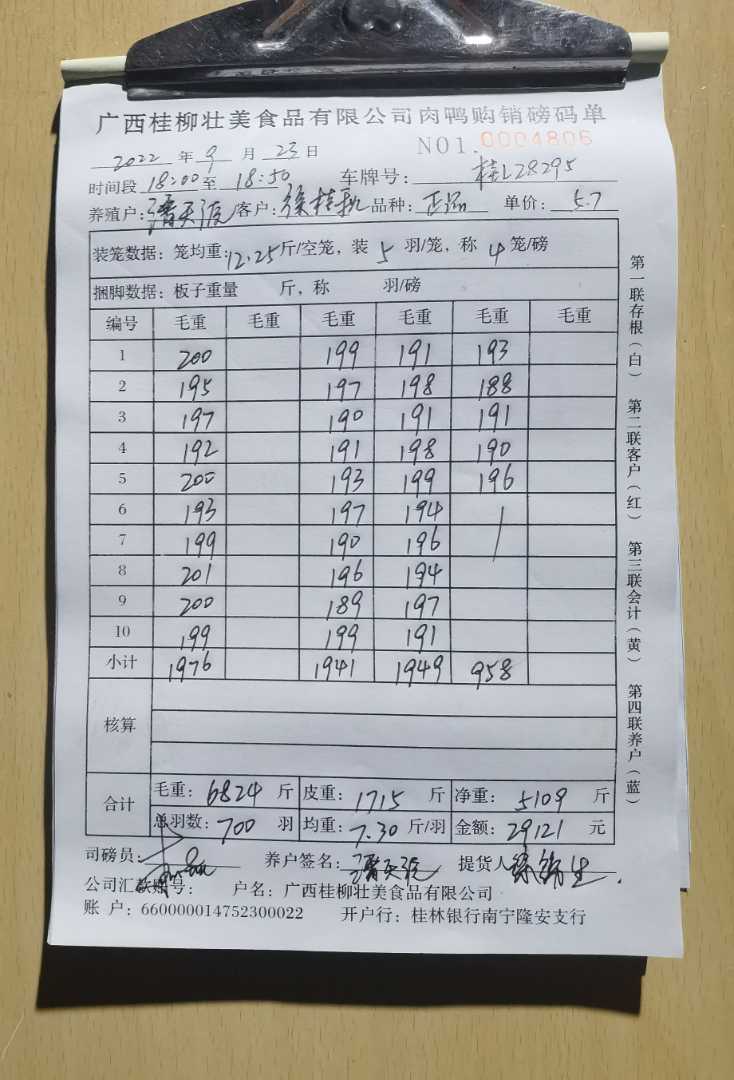 广西桂柳壮美食品有限公司肉鸭购销磅码单
NO1. 0004806
2022 年 9 月 23 日
时间段 18:00 至 18:50 车牌号: 桂L28295
养殖户: 客户: 品种: 正品 单价: 5.7
装笼数据: 笼均重: 12.25 斤/空笼, 装 5 羽/笼, 称 4 笼/磅
捆脚数据: 板子重量 斤, 称 羽/磅
编号 毛重 毛重 毛重 毛重 毛重 毛重
1 200 199 191 193
2 195 197 198 188
3 197 190 191 191
4 192 191 198 190
5 200 193 199 196
6 193 197 194
7 199 190 196
8 201 196 194
9 200 189 197
10 199 199 191
小计 1976 1941 1949 958
核算
合计 毛重: 6824 斤 皮重: 1715 斤 净重: 5109 斤
总羽数: 700 羽 均重: 7.30 斤/羽 金额: 29121 元
司磅员: 养户签名: 提货人
公司汇款账号: 户名: 广西桂柳壮美食品有限公司
账 户: 660000014752300022 开户行: 桂林银行南宁隆安支行
第一联存根(白) 第二联客户(红) 第三联会计(黄) 第四联养户(蓝)